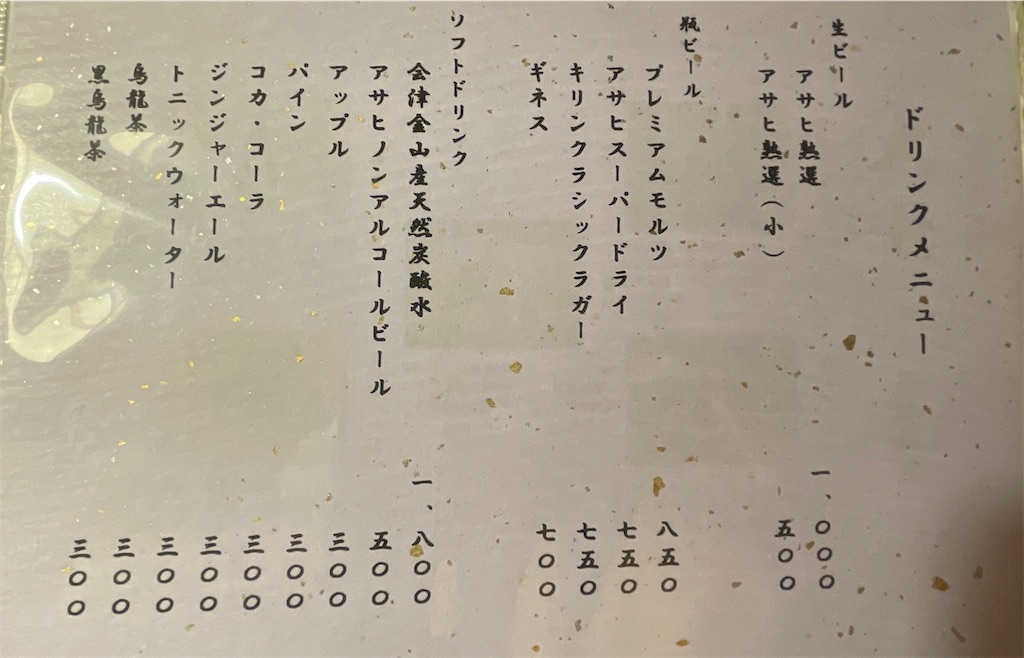 ドリンクメニュー
生ビール
アサヒ熟選 一、〇〇〇
アサヒ熟選（小） 五〇〇
瓶ビール
プレミアムモルツ 八五〇
アサヒスーパードライ 七五〇
キリンクラシックラガー 七五〇
ギネス 七〇〇
ソフトドリンク
会津金山産天然炭酸水 一、八〇〇
アサヒノンアルコールビール 五〇〇
アップル 三〇〇
パイン 三〇〇
コカ・コーラ 三〇〇
ジンジャーエール 三〇〇
トニックウォーター 三〇〇
烏龍茶 三〇〇
黒烏龍茶 三〇〇